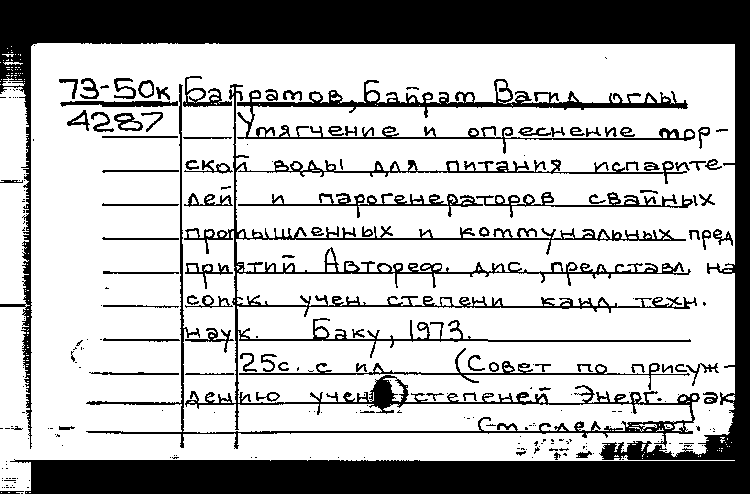 73-50к Байрамов, Байрам Вагид оглы.
4287 Умягчение и опреснение мор-
ской воды для питания испарите-
лей и парогенераторов свайных
промышленных и коммунальных пред
приятий. Автореф. дис., представл. на
соиск. учен. степени канд. техн.
наук. Баку, 1973.
25с. с ил. (Совет по присуж-
дению учен степеней Энерг. фак
См. след. карт.